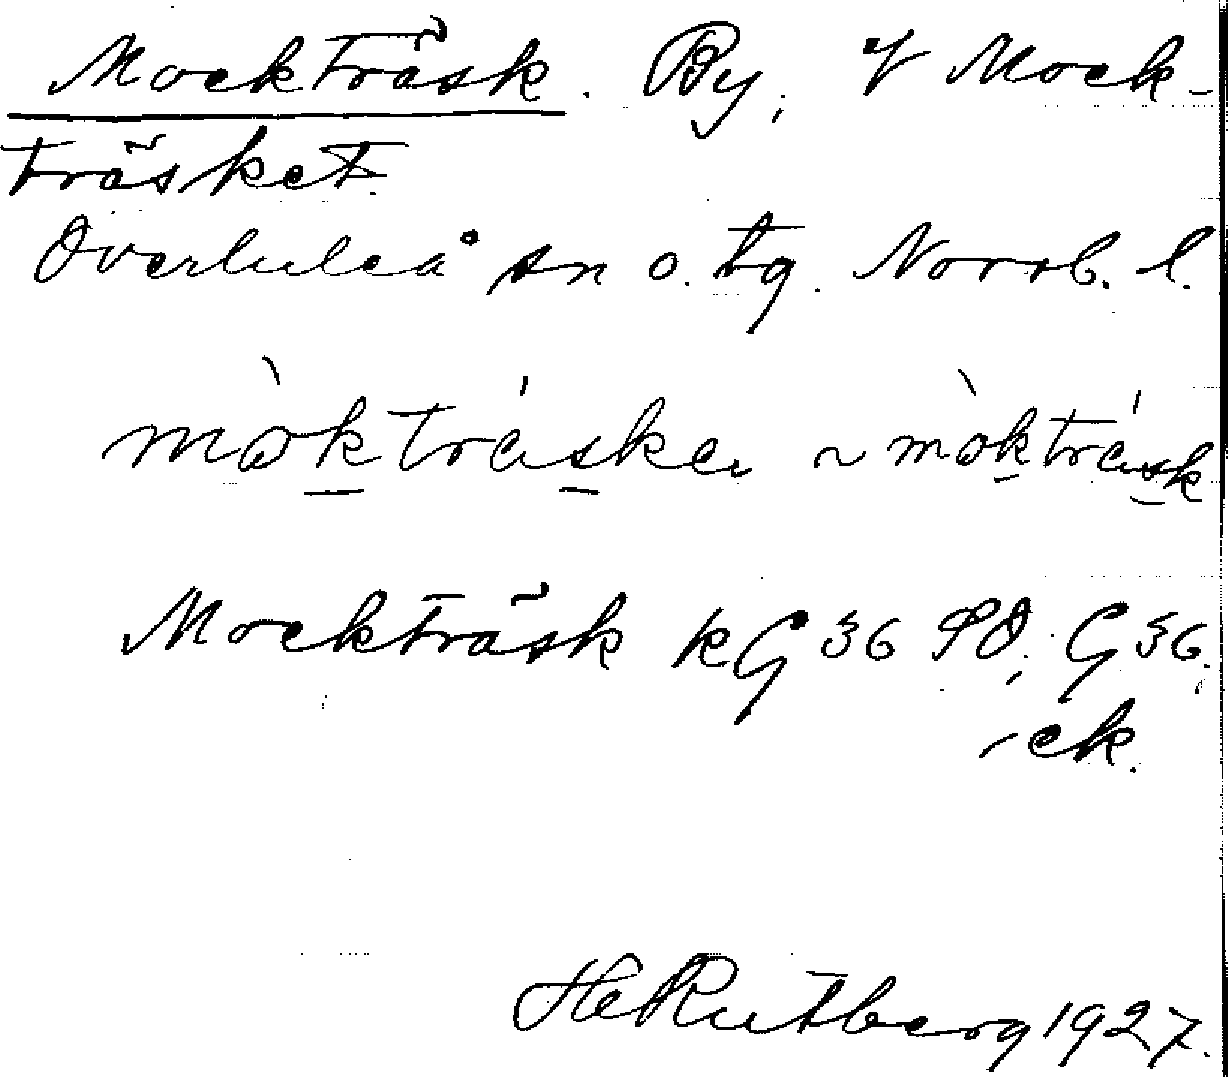 Mockträsk. By, V Mock-
träsket.
Överluleå sn o. tg. Norrb. l.
mòktráskɑ ~ mòktrásk
Mockträsk kG 36 SO; G 36,
-ck.
HeRutberg 1927.